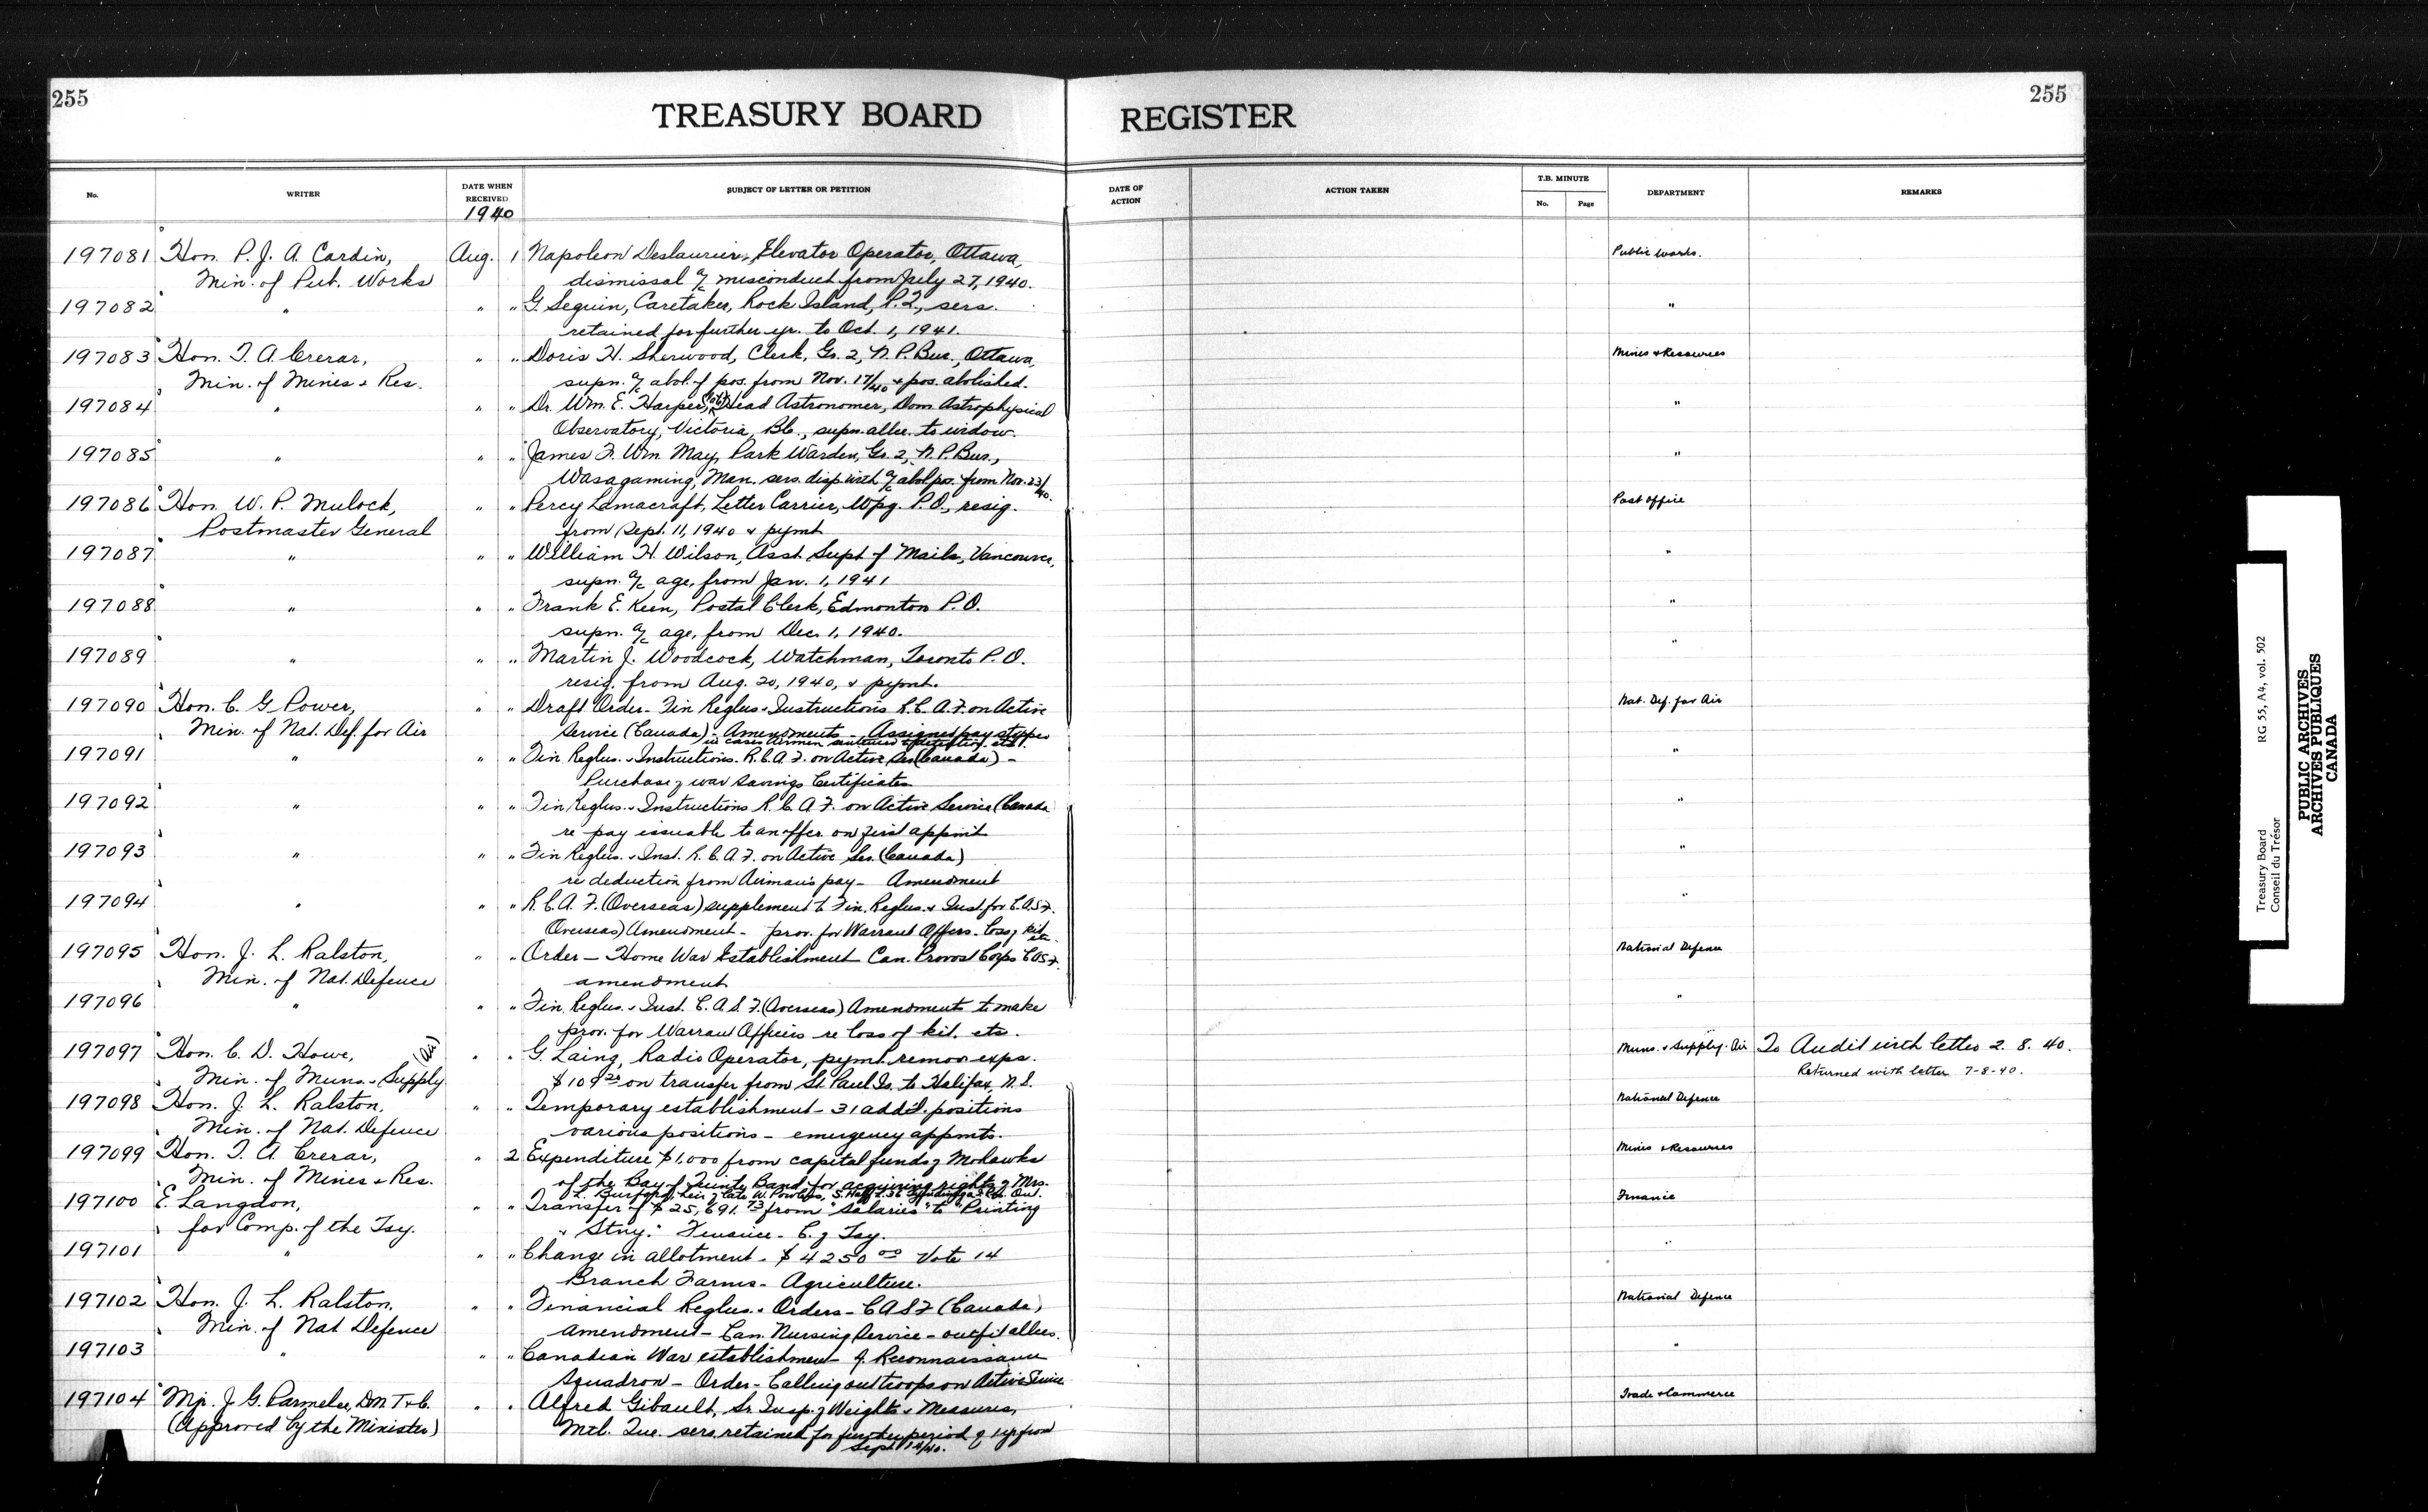 255
255
TREASURY BOARD REGISTER
No. WRITER DATE WHEN RECEIVED SUBJECT OF LETTER OR PETITION DATE OF ACTION ACTION TAKEN T.B. MINUTE No. Page DEPARTMENT REMARKS
1940
197081 Hon. P. J. A. Cardin, Aug. 1 Napoleon Deslauriers, Elevator Operator, Ottawa, Public Works.
Min. of Pub. Works dismissal a/c misconduct from July 27, 1940.
197082 " " " G. Seguin, Caretaker, Rock Island, P.Q., sers. "
retained for further yr. to Oct. 1, 1941.
197083 Hon. T. A. Crerar, " " Doris H. Sherwood, Clerk, Gr. 2, N.P. Bur., Ottawa, Mines & Resources
Min. of Mines & Res. supn. a/c abol. of pos. from Nov. 17/40 & pos. abolished.
197084 " " " Dr. Wm. E. Harper, Head Astronomer, Dom Astrophysical "
Observatory, Victoria, B.C., supn. allce. to widow.
197085 " " " James F. Wm. May, Park Warden, Gr. 2, N.P. Bur., "
Wasagaming, Man. sers. disp. with a/c abol. pos. from Nov. 23/40.
197086 Hon. W. P. Mulock, " " Percy Lamacraft, Letter Carrier, Wpg. P.O., resig. Post Office
Postmaster General from Sept. 11, 1940 & pymt
197087 " " " William H. Wilson, Asst. Supt. of Mails, Vancouver, "
supn. a/c age, from Jan. 1, 1941
197088 " " " Frank E. Keen, Postal Clerk, Edmonton P.O. "
supn. a/c age, from Dec. 1, 1940.
197089 " " " Martin J. Woodcock, Watchman, Toronto P.O. "
resig. from Aug. 20, 1940, & pymt.
197090 Hon. C. G. Power, " " Draft Order - Fin Reglns & Instructions R.C.A.F. on Active Nat. Def. for Air
Min. of Nat. Def. for Air Service (Canada) - Amendments - Assigned pay stoppes
in cases Airmen sentenced to detention etc.
197091 " " " Fin Reglns. & Instructions. R.C.A.F. on Active Ser. (Canada) - "
Purchase of War Savings Certificates
197092 " " " Fin Reglns. & Instructions R.C.A.F. on Active Service (Canada "
re pay issuable to an offer. on first appmt
197093 " " " Fin Reglns. & Inst. R.C.A.F. on Active Ser. (Canada) "
re deduction from Airman's pay - Amendment
197094 " " " R.C.A.F. (Overseas) supplement to Fin. Reglns. & Inst for C.A.S.F. "
Overseas) Amendment - prov. for Warrant Offers. loss of kit etc.
197095 Hon. J. L. Ralston, " " Order - Home War Establishment Can. Provost Corps CASF. National Defence
Min. of Nat. Defence amendment
197096 " " " Fin. Reglns. & Inst. C.A.S.F. (Overseas) Amendments to make "
prov. for Warrant Officers re loss of kit. etc.
197097 Hon. C. D. Howe, (Air) " " G. Laing, Radio Operator, pymt. remov exps. Muns. & Supply - Air To Audit with letter 2. 8. 40.
Min. of Muns. & Supply $109 on transfer from St. Paul Is. to Halifax, N.S. Returned with letter 7-8-40.
197098 Hon. J. L. Ralston, " " Temporary establishment - 31 add'l. positions National Defence
Min. of Nat. Defence various positions - emergency appmts.
197099 Hon. T. A. Crerar, " 2 Expenditure $1,000 from capital funds of Mohawks Mines & Resources
Min. of Mines & Res. of the Bay of Quinte Band for acquiring rights of Mrs.
L. Burford, heir of late W. Powless, S. Half L.36 Tyendinaga Ont.
197100 E. Langdon, " " Transfer of $25,691.73 from "Salaries" to "Printing Finance
for Comp. of the Tsy. & Stny." Finance - C. of Tsy.
197101 " " " Change in allotment - $4250 00 Vote 14 "
Branch Farms - Agriculture.
197102 Hon. J. L. Ralston, " " Financial Reglns. & Orders - CASF (Canada) National Defence
Min. of Nat Defence Amendment - Can. Nursing Service - outfit allces.
197103 " " " Canadian War establishment of Reconnaissance "
Squadron - Order - Calling out troops on Active Service
197104 Mjr. J. G. Parmelee, D.M. T&C. " " Alfred Gibault, Sr. Insp. of Weights & Measures, Trade & Commerce
(Approved by the Minister) Mtl. Que. sers. retained for further period of 1 yr from
Sept. 14/40.
Treasury Board RG 55, A4, vol. 502
Conseil du Trésor
PUBLIC ARCHIVES
ARCHIVES PUBLIQUES
CANADA